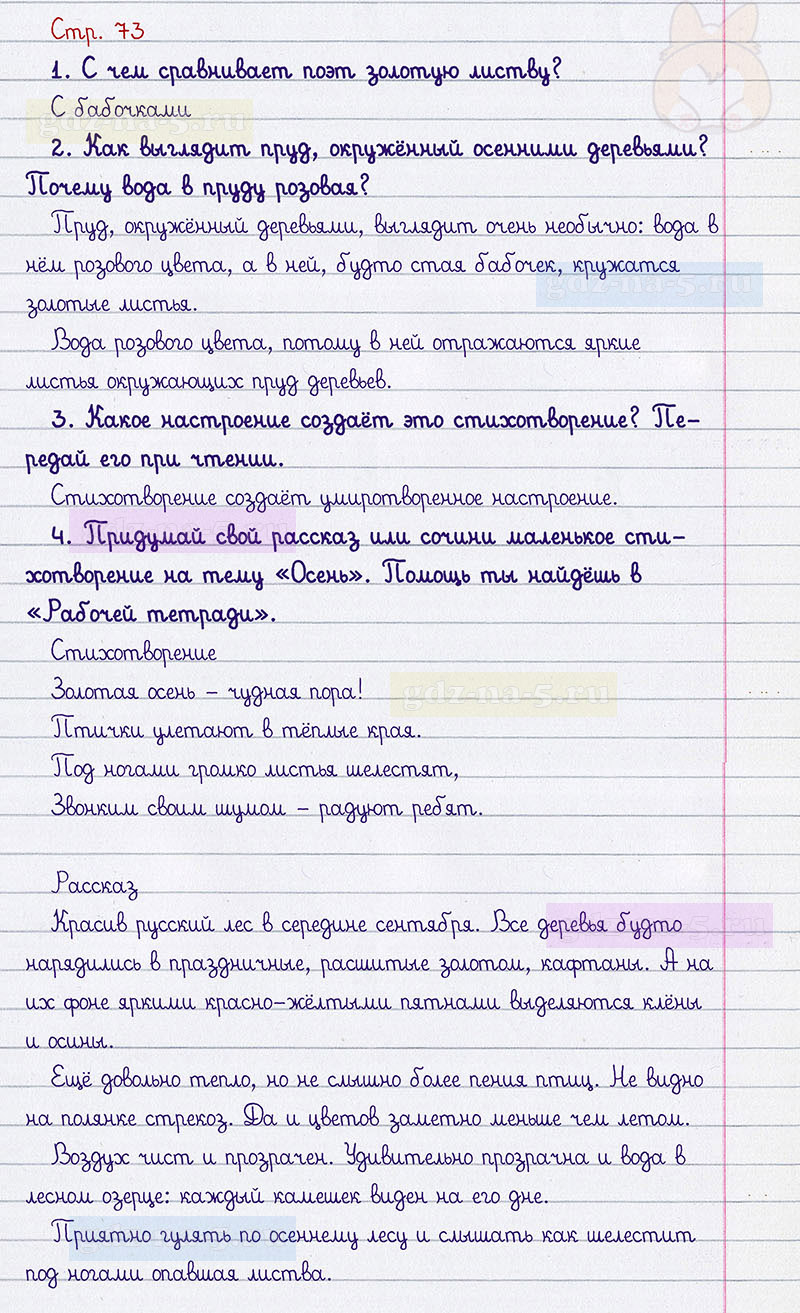 Стр. 73
1. С чем сравнивает поэт золотую листву?
С бабочками
gdz-na-5.ru
2. Как выглядит пруд, окружённый осенними деревьями?
Почему вода в пруду розовая?
Пруд, окружённый деревьями, выглядит очень необычно: вода в
нём розового цвета, а в ней, будто стая бабочек, кружатся
gdz-na-5.ru
золотые листья.
Вода розового цвета, потому в ней отражаются яркие
листья окружающих пруд деревьев.
3. Какое настроение создаёт это стихотворение? Пе-
редай его при чтении.
Стихотворение создаёт умиротворенное настроение.
gdz-na-5.ru
4. Придумай свой рассказ или сочини маленькое сти-
хотворение на тему «Осень». Помощь ты найдёшь в
«Рабочей тетради».
Стихотворение
Золотая осень – чудная пора!
gdz-na-5.ru
Птички улетают в тёплые края.
Под ногами громко листья шелестят,
Звонким своим шумом – радуют ребят.
Рассказ
Красив русский лес в середине сентября. Все деревья будто
gdz-na-5.ru
нарядились в праздничные, расшитые золотом, кафтаны. А на
их фоне яркими красно-жёлтыми пятнами выделяются клёны
и осины.
Ещё довольно тепло, но не слышно более пения птиц. Не видно
на полянке стрекоз. Да и цветов заметно меньше чем летом.
Воздух чист и прозрачен. Удивительно прозрачна и вода в
лесном озерце: каждый камешек виден на его дне.
Приятно гулять по осеннему лесу и слышать как шелестит
gdz-na-5.ru
под ногами опавшая листва.